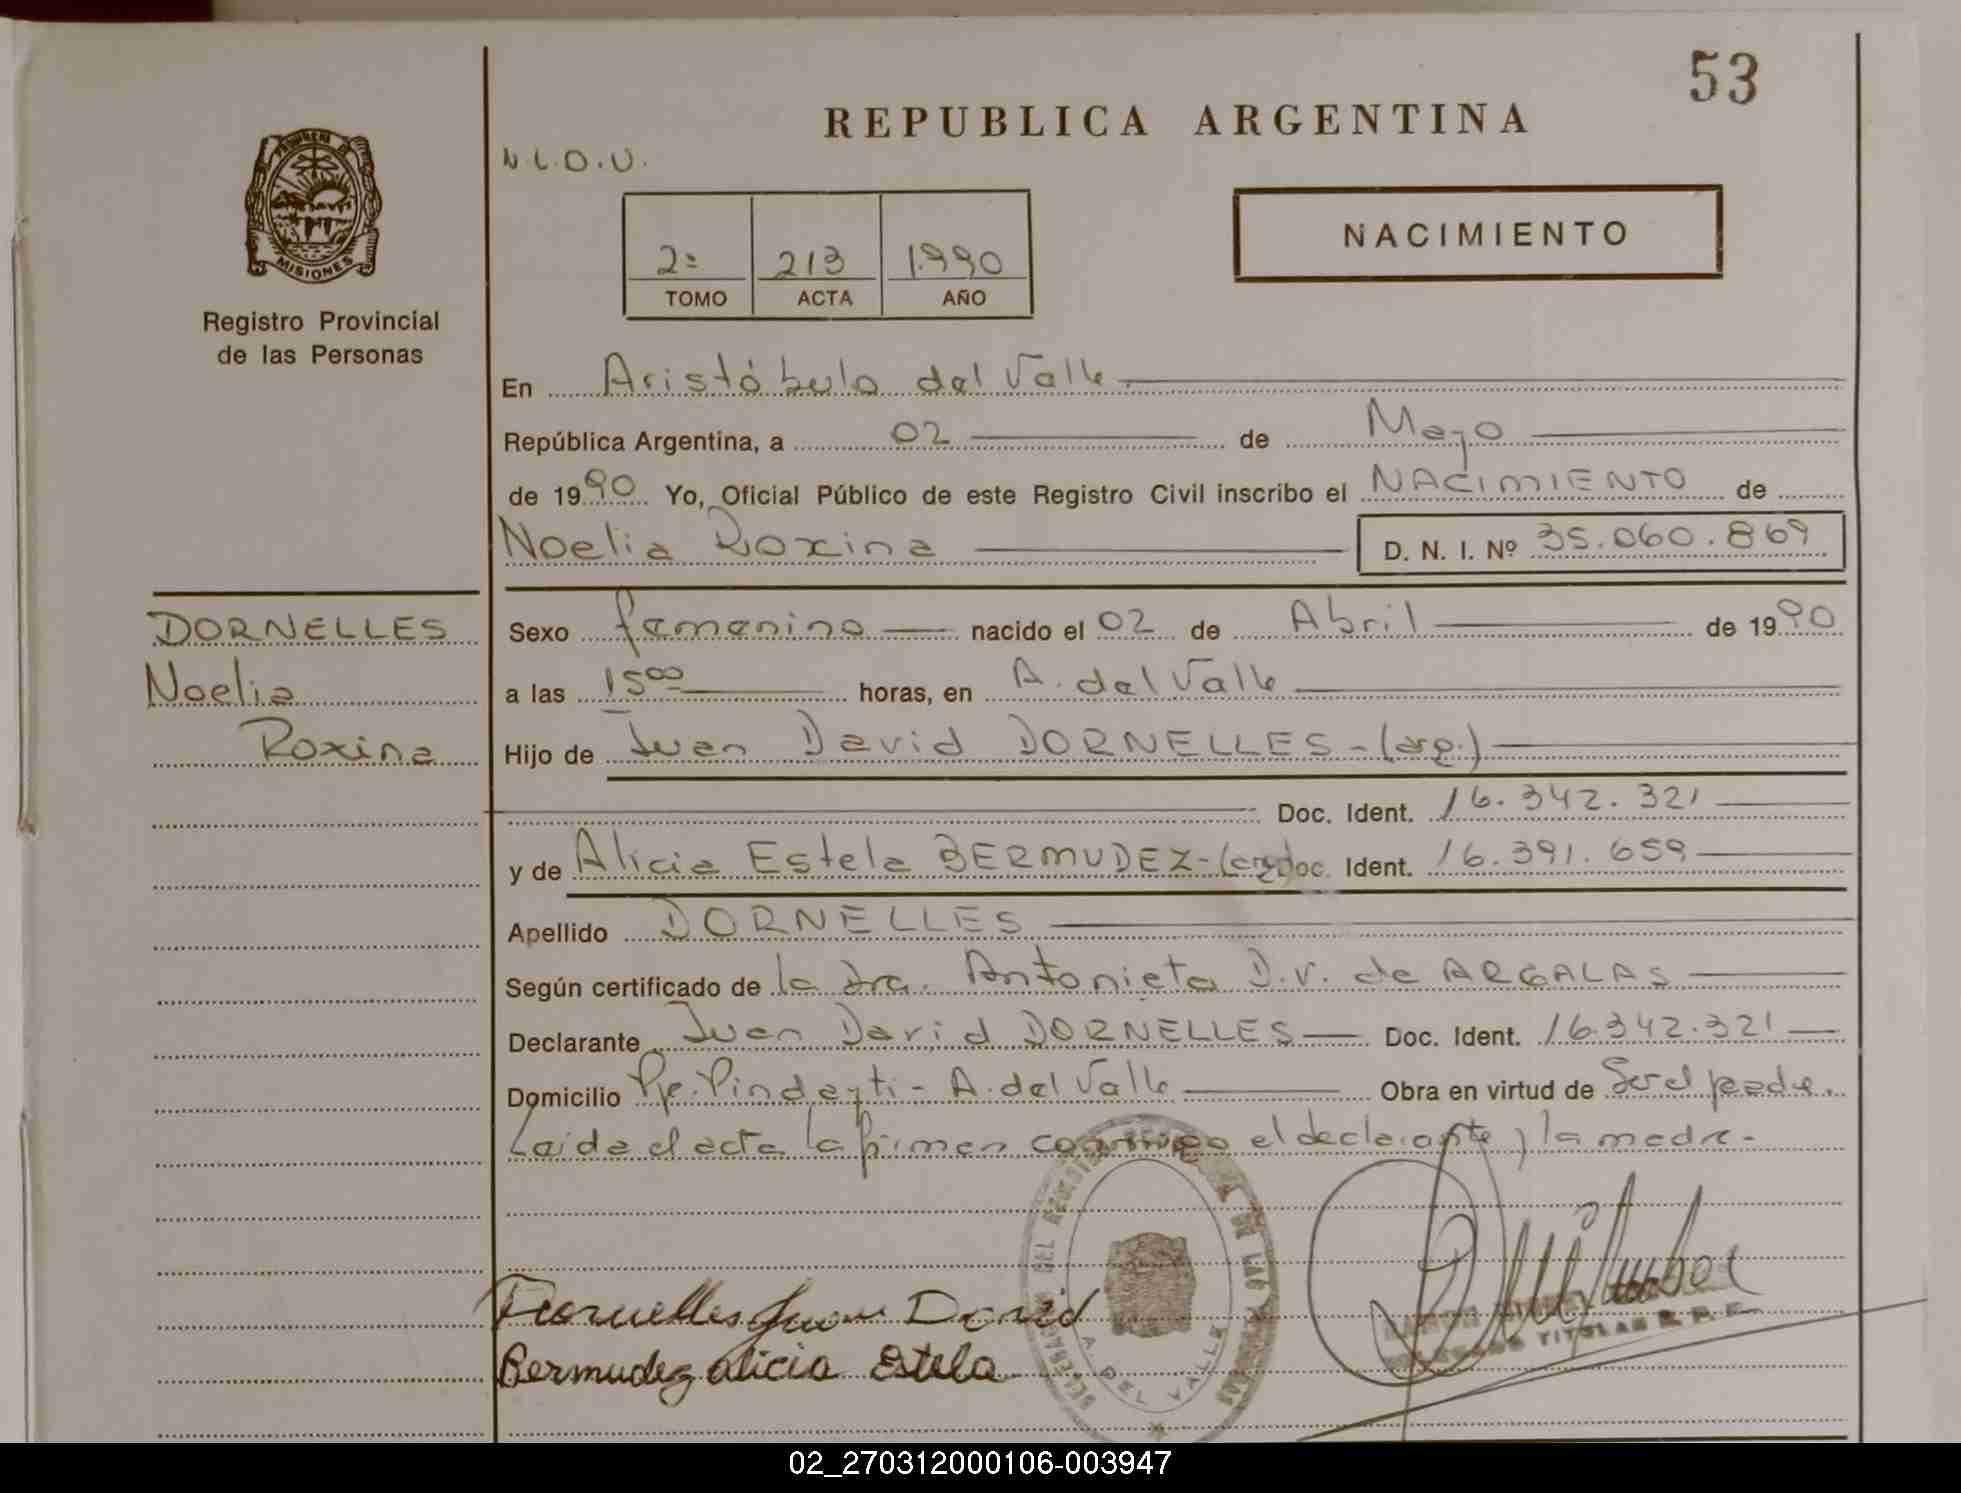 53
REPUBLICA ARGENTINA
N.L.O.U.
PROVINCIA DE
MISIONES
Registro Provincial
de las Personas
NACIMIENTO
2º 213 1.990
TOMO ACTA AÑO
En Aristóbulo del Valle
República Argentina, a 02 de Mayo
de 1990 Yo, Oficial Público de este Registro Civil inscribo el NACIMIENTO de
Noelia Roxina D. N. I. Nº 35.060.869
DORNELLES
Noelia
Roxina
Sexo femenino nacido el 02 de Abril de 1990
a las 15 00 horas, en A. del Valle
Hijo de Juan David DORNELLES-(arg.)
Doc. Ident. 16.342.321
y de Alicia Estela BERMUDEZ-(arg) Doc. Ident. 16.391.659
Apellido DORNELLES
Según certificado de la Dra. Antonieta D.V. de ARGALAS
Declarante Juan David DORNELLES Doc. Ident. 16.342.321
Domicilio Pje. Pindayti - A. del Valle Obra en virtud de Ser el padre.
Leida el acta la firman conmigo el declarante y la madre-
Dornelles Juan David
Bermudez alicia Estela
DELEGACION DEL REGISTRO DE LAS PERSONAS
A. DEL VALLE
TITULAR R. P. P.
02_270312000106-003947